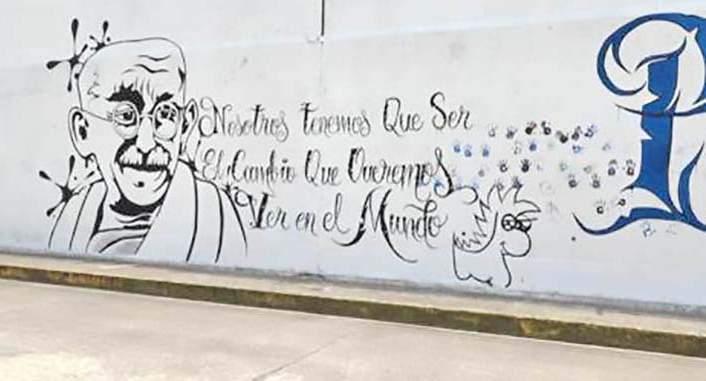 Nosotros tenemos Que Ser
El Cambio Que Queremos
Ver en el Mundo
P